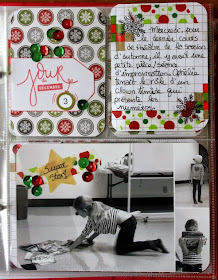 Jour
DÉCEMBRE
3
Mercredi, pour
le dernier cours
de théâtre de la session
d'automne, il y avait une
petite pièce/séance
d'improvisation. Ophélia
tenait le rôle d'un
clown timide qui
présente les
numéros.
Super
Star!